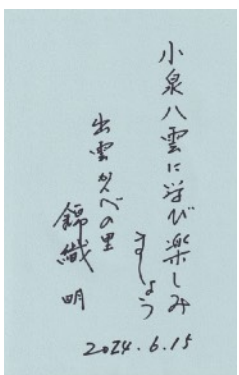 小泉八雲に学び楽しみ
ましょう
出雲かんべの里
錦織 明
2024.6.15